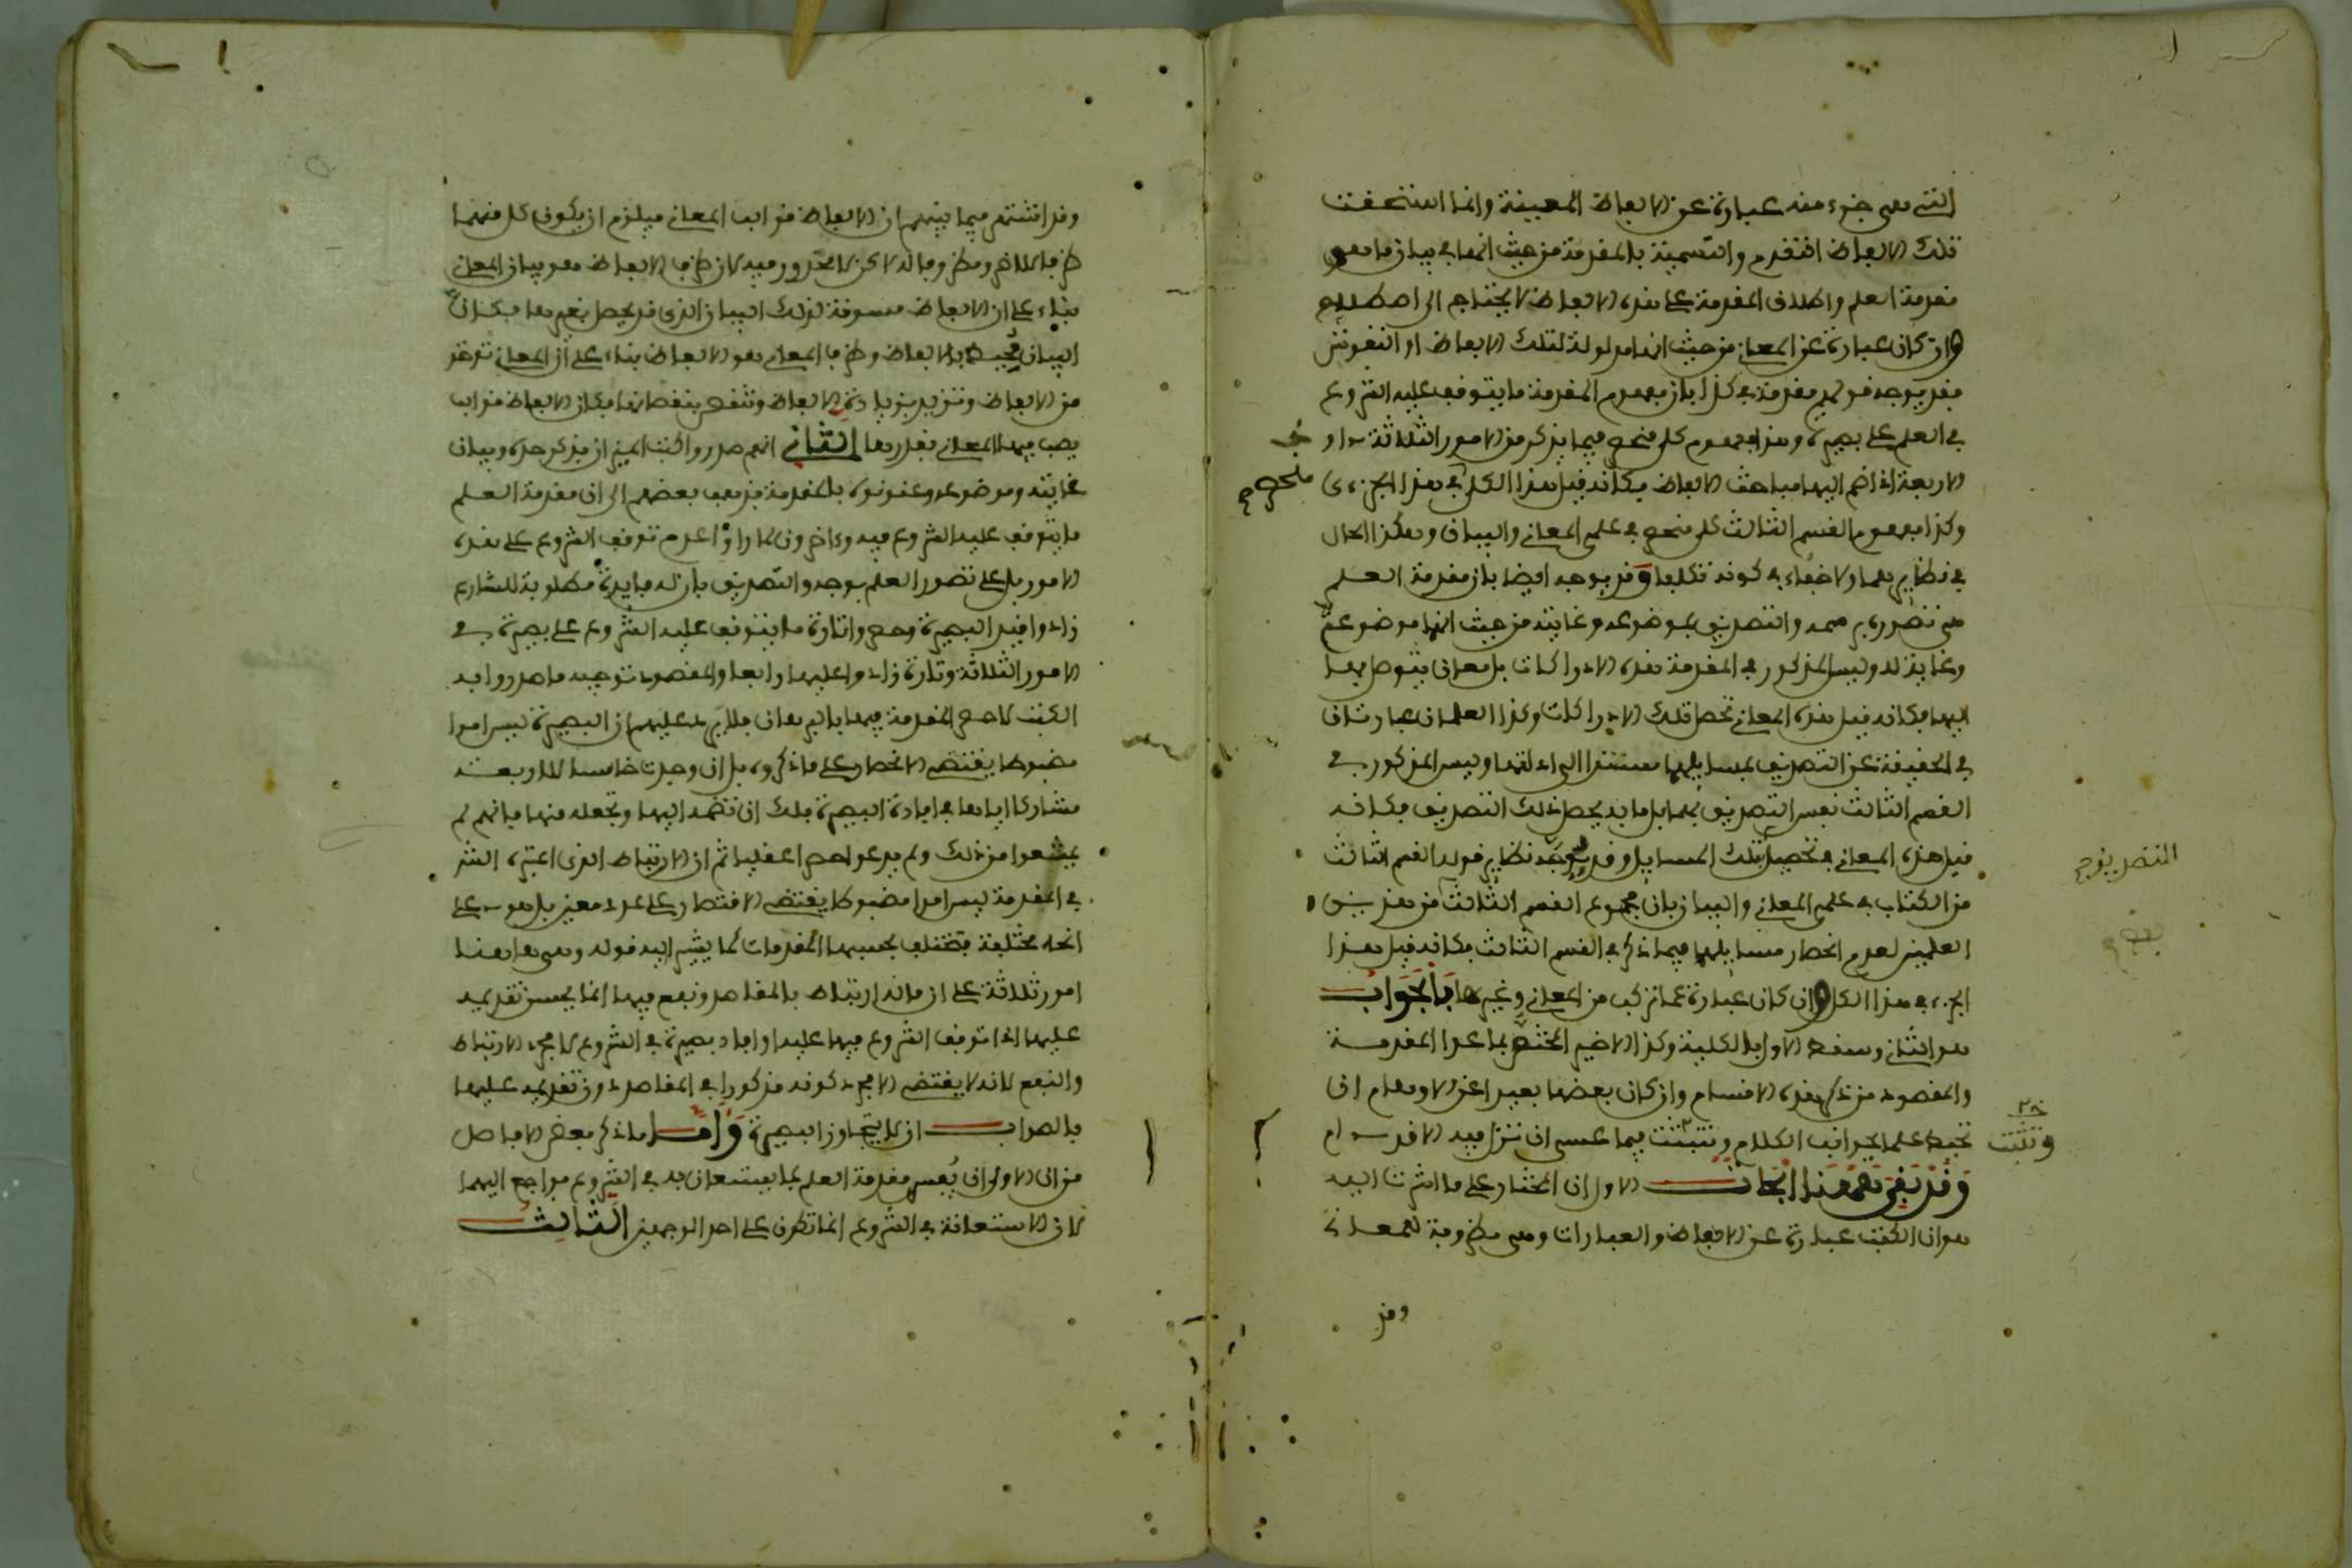 التي هي جزء منه عبارة عن الالفاظ المعينة وانما استحقت
تلك الالفاظ التقدم والتسمية بالمقدمة من حيث انها في بيان ما هو
مقدمة العلم واطلاق المقدمة على هذه الالفاظ لا يحتاج الى اصطلاح
وان كان عبارة عن المعاني من حيث انها مدلولة لتلك الالفاظ او النقوش
فقد يوجه قولهم مقدمة في كذا بان مفهوم المقدمة ما يتوقف عليه الشروع
في العلم على بصيرة وهذا مفهوم كلي منحصر فيما يذكر من الامور الثلاثة او
الاربعة اذا ضم اليها مباحث الالفاظ فكانه قيل هذا الكلي في هذا الجزءي
وكذا مفهوم القسم الثالث كلي منحصر في علمي المعاني والبيان وهكذا الحال
في نظايرهما ولا خفاء في كونه تكلفا وقد يوجه ايضا بان مقدمة العلم
هي تصوره برسمه والتصديق بموضوعه وغايته من حيث انها موضوعه
وغاية له وليس المذكور في المقدمة هذه الادراكات بل معاني يتوصل بها
اليها فكانه قيل هذه المعاني تحصل تلك الادراكات وكذا العلمان عبارتان
في الحقيقة عن التصديق بمسايلهما مستندا الى ادلتها وليس المذكور في
القسم الثالث نفس التصديق بها بل ما به يحصل ذلك التصديق فكانه
قيل هذه المعاني في تحصيل تلك المسايل وقد يوجه نظاير قوله القسم الثالث
من الكتاب في علمي المعاني والبيان بان مجموع القسم الثالث من هذين
العلمين لعدم انحصار مسايلهما فيما ذكر في القسم الثالث فكانه قيل هذا
الجزء في هذا الكل وان كان عبارة عما تركب من المعاني وغيرها فالجواب
هو الثاني وسقط الاول بالكلية وكذا الاخير المختص بما عدا المقدمة
والمقصود من ذكر هذه الاقسام وان كان بعضها بعيدا عن الاوهام ان
تحيط علما بجوانب الكلام وتتثبت فيما عسى ان تزل فيه الاقدام
وقد بقي ههنا ابحاث الاول ان المختار على ما اشرت اليه
هو ان الكتب عبارة عن الالفاظ والعبارات وهي مظروفة للمعاني
وقد
التصديق
وتثبت
وقد اشتهر فيما بينهم ان الالفاظ قوالب المعاني فيلزم ان يكون كل منهما
ظرفا للاخر ومظروفا له لاكن لا محذور فيه لان ظرف الالفاظ هو بيان المعاني
بناء على ان الالفاظ مسوقة لذلك البيان الذي قد يحصل بغيرها فكان
البيان محيط بالالفاظ وظرف المعاني هو الالفاظ بناء على ان المعاني توخذ
من الالفاظ وتزيد بزيادة الالفاظ وتنقص بنقصانها فكان الالفاظ قوالب
يصب فيها المعاني بقدرها الثاني انهم صدروا كتب الميزان بذكر حده وبيان
غايته وموضوعه وعنونوه بالمقدمة فذهب بعضهم الى ان مقدمة العلم
ما يتوقف عليه الشروع فيه وءاخرون لما راوا عدم توقف الشروع على هذه
الامور بل على تصور العلم بوجه والتصديق بان له فايدة مطلوبة للشارع
زادوا قيد البصيرة وحصروا تارة ما يتوقف عليه الشروع على بصيرة في
الامور الثلاثة وتارة زادوا عليها رابعا والمقصود توجيه ما صدروا به
الكتب لا حصر المقدمة فيها بالبرهان فلا يرد عليهم ان البصيرة ليس امرا
مضبوطا يقتضي الانحصار على ما ذكروه بل ان وجدت خامسا للاربعة
مشاركا اياها في افادة البصيرة فلك ان تضمه اليها وتجعله منها فانهم لم
يمنعوا من ذلك ولم يدعوا حصرا عقليا ثم ان الارتباط الذي اعتبره الشر
في المقدمة ليس امرا مضبوطا يقتضي الاقتصار على عدد معين بل هو على
انحاء مختلفة تختلف بحسبها المقدمات كما يشير اليه قوله وهي هاهنا
امور ثلاثة على ان ماله ارتباط بالمقاصد ونفع فيها انما يحسن تقديمه
عليها اذا توقف الشروع فيها عليه او افاد بصيرة في الشروع لا مجرد الارتباط
والنفع لانه لا يقتضي الا مجرد كونه مذكورا في المقاصد دون تقديمه عليها
فالصواب ان لا يتجاوز البصيرة واما ما ذكر بعض الافاضل
من ان الاولى ان يفسر مقدمة العلم بما يستعان به في الشروع فراجع اليها
لان الاستعانة في الشروع انما تكون على احد الوجهين الثالث